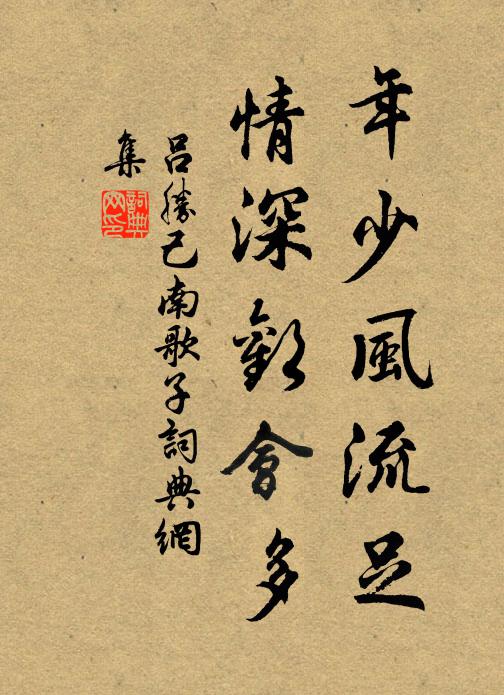 年少風流足
情深歡會多
呂勝己南歌子詞典網
集
詞典網印